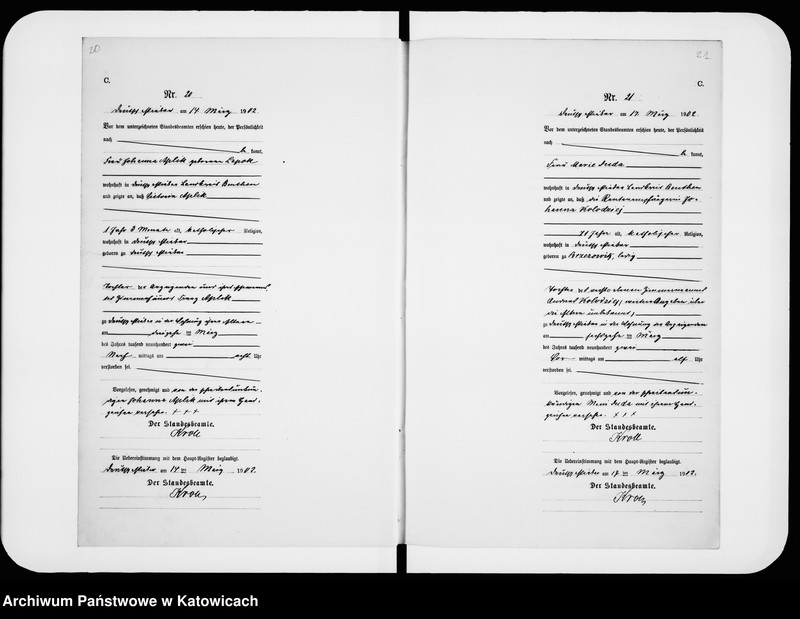 20
C.
Nr. 20
am 14 März 1902
Vor dem unterzeichneten Standesbeamten erschien heute, der Persönlichkeit
nach
kannt,
Frau Johanna geborene
wohnhaft in Deutsch Piekar Landkreis Beuthen
und zeigte an, daß Victoria
1 Jahr Monate alt, katholischer Religion,
wohnhaft in Deutsch Piekar
geboren zu Deutsch Piekar
Tochter der Anzeigenden und ihres Ehemannes,
des Franz
zu Deutsch Piekar in der Wohnung ihrer Eltern
am dreizehn ten März
des Jahres tausend neunhundert zwei
Nach mittags um acht Uhr
verstorben sei.
Vorgelesen, genehmigt und von der schreibunkundigen
Johanna mit ihrem Handzeichen
versehen. + + +
Der Standesbeamte.
Kroll
Die Uebereinstimmung mit dem Haupt-Register beglaubigt.
Deutsch Piekar am 14 ten März 1902.
Der Standesbeamte.
Kroll
21
C.
Nr. 21
Deutsch Piekar am 17. März 1902
Vor dem unterzeichneten Standesbeamten erschien heute, der Persönlichkeit
nach
kannt,
Frau Marie Duda
wohnhaft in Deutsch Piekar Landkreis Beuthen
und zeigte an, daß die Rentenempfängerin Jo-
hanna Kolodziej
alt, katholischer Religion,
wohnhaft in Deutsch Piekar
geboren zu ledig
Tochter des verstorbenen Zimmermanns
Andreas Kolodziej, weitere Angaben über
die Eltern unbekannt,
zu Deutsch Piekar in der Wohnung der Anzeigenden
am sechzehn ten März
des Jahres tausend neunhundert zwei
Vor mittags um elf Uhr
verstorben sei.
Vorgelesen, genehmigt und von der schreibun-
kundigen Duda mit ihrem Hand-
zeichen versehen. + + +
Der Standesbeamte.
Kroll
Die Uebereinstimmung mit dem Haupt-Register beglaubigt.
Deutsch Piekar am 17 ten März 1902.
Der Standesbeamte.
Kroll
Archiwum Państwowe w Katowicach